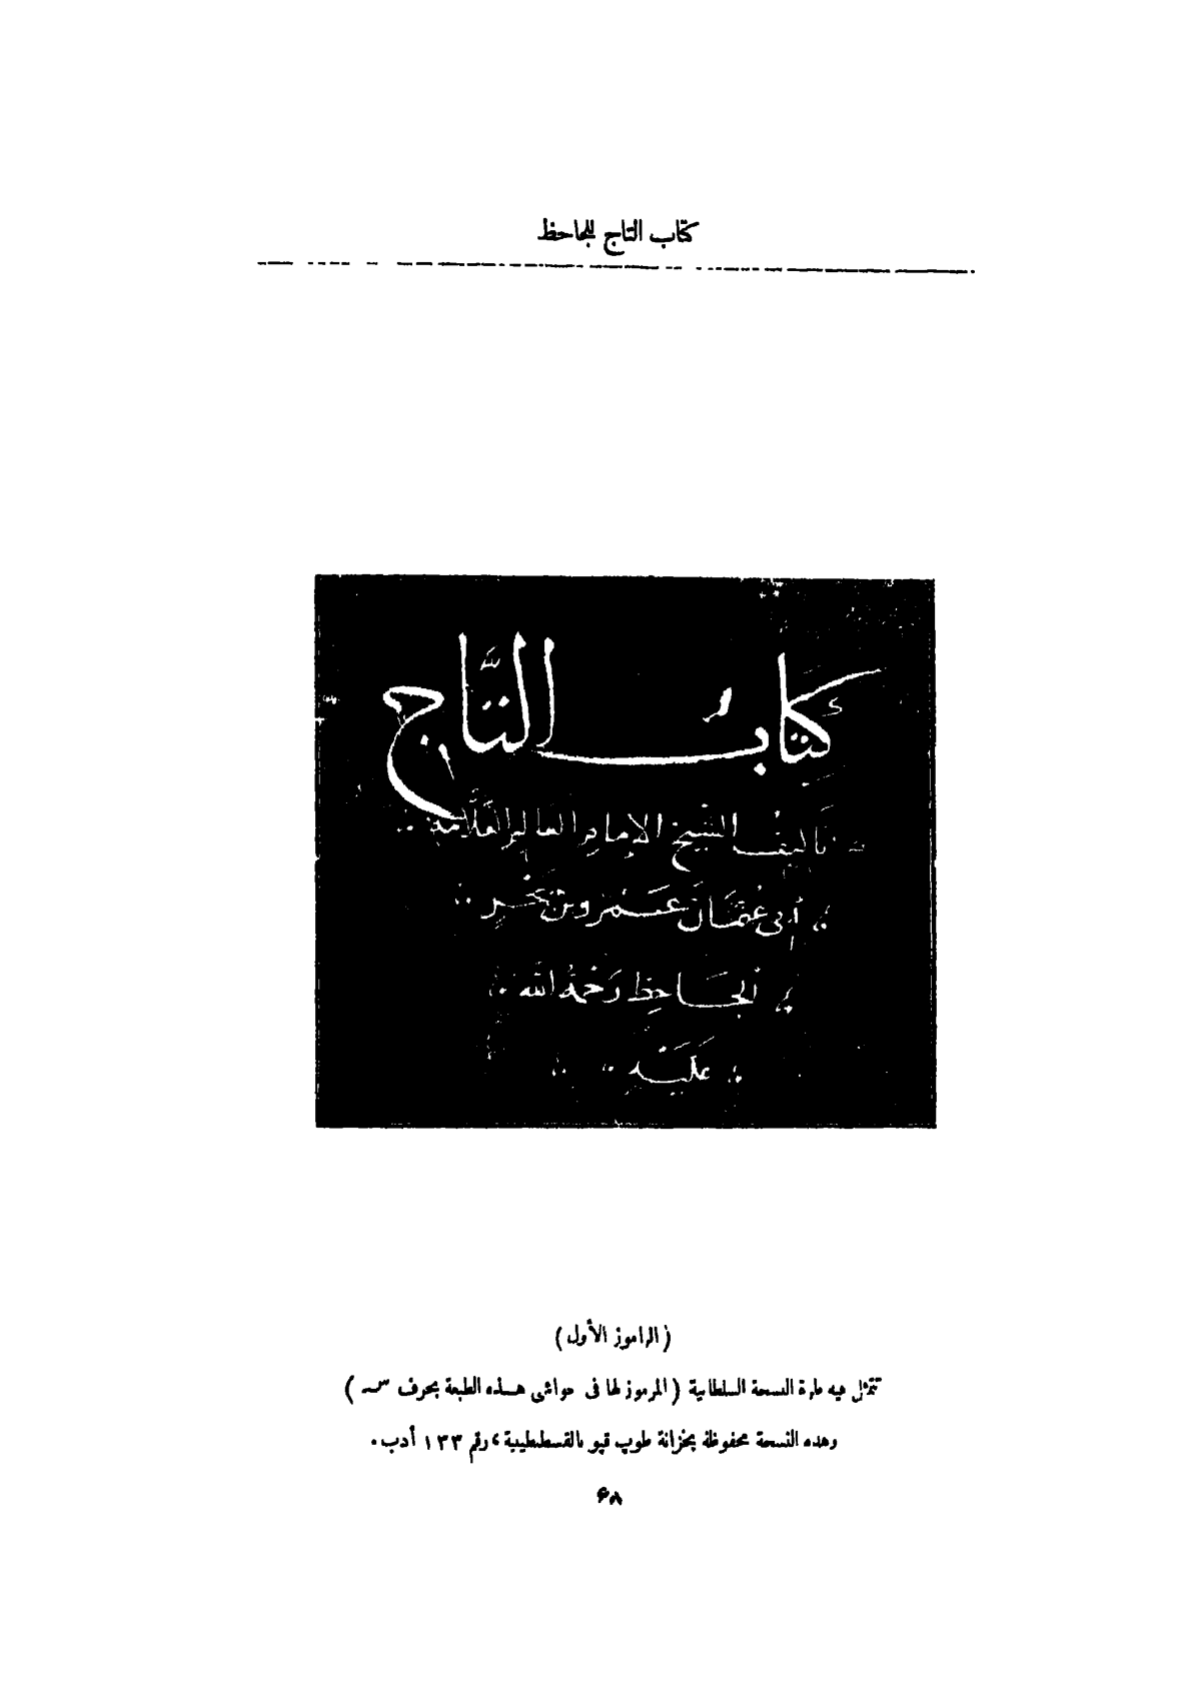 كتاب التاج للجاحظ
كِتَابُ التَّاج
تأليف الشيخ الإمام العالم العلّامة
أبى عثمان عمرو بن بحر
الجاحظ رحمة الله
عليه
(الراموز الأول)
تتمثل فيه طرة النسخة السلطانية (المرموز لها فى حواشى هـذه الطبعة بحرف سـ)
وهذه النسخة محفوظة بخزانة طوپ قپو بالقسطنطينية، رقم ١٣٣ أدب.
۶۸